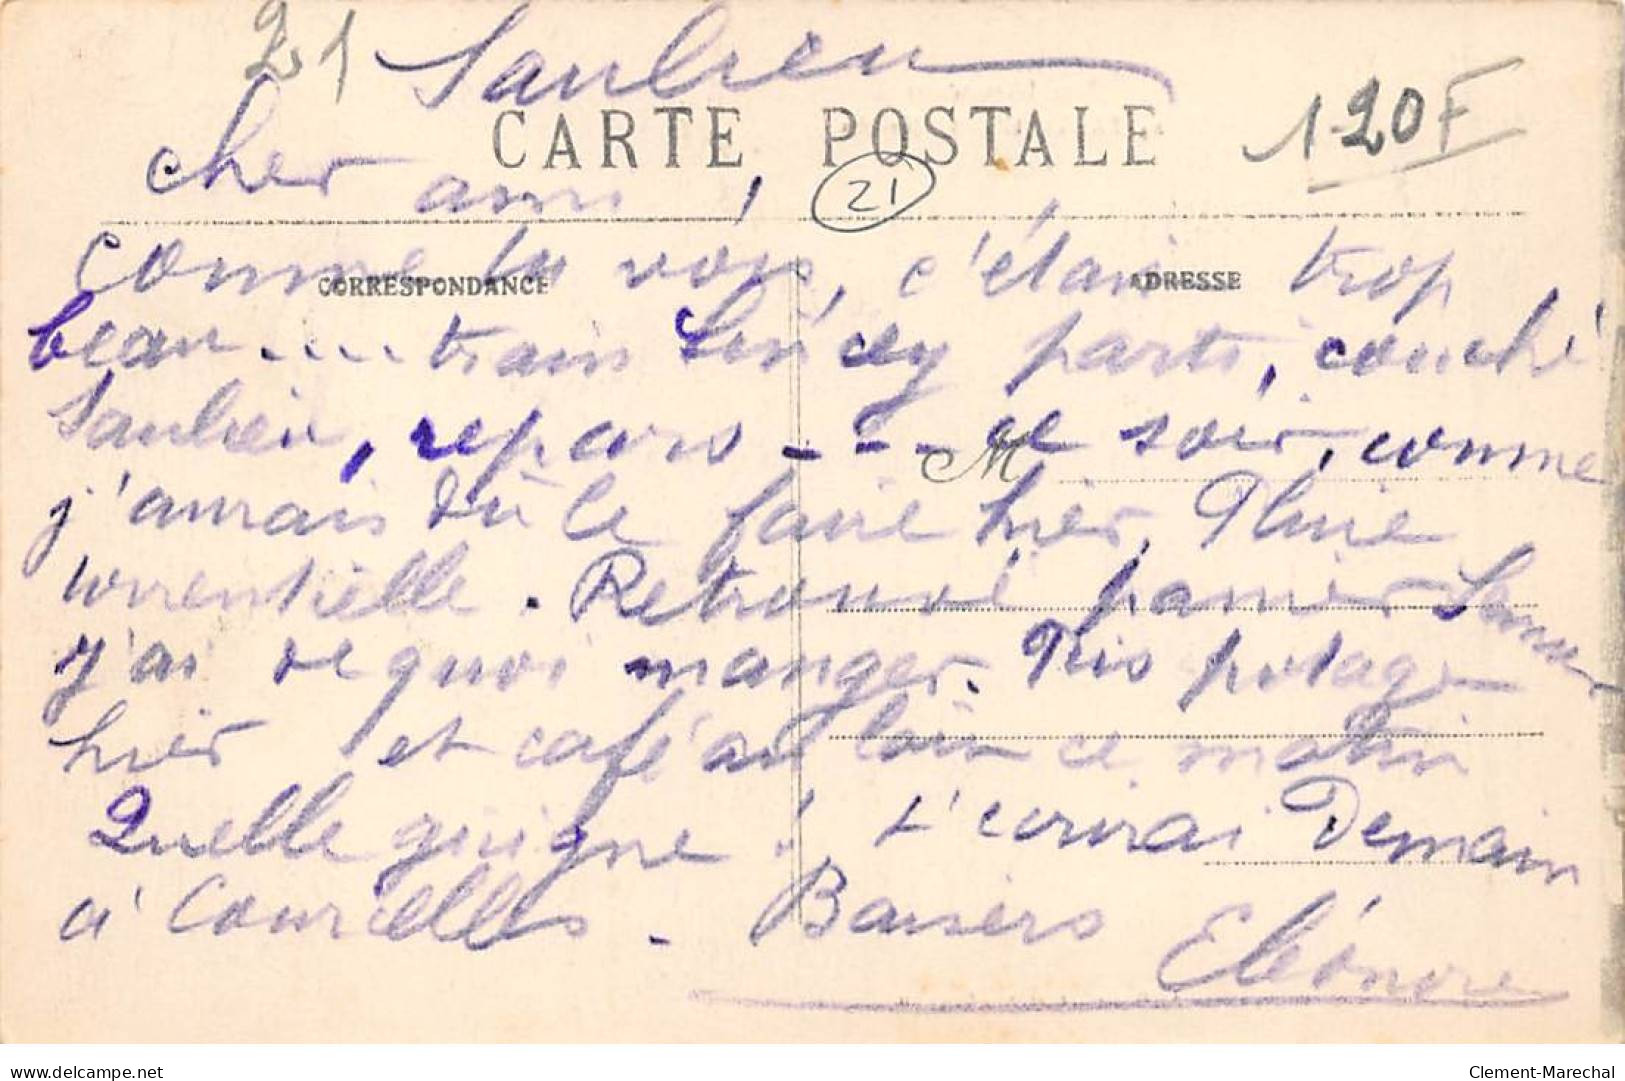 21 Saulieu
1-20F
CARTE POSTALE
21
Cher ami,
CORRESPONDANCE
ADRESSE
comme tu vois, c'étais trop
beau .... train parti, couché
Saulieu, repars - - - ce soir, comme
M
j'aurais dû le faire hier. Pluie
torrentielle. Retrouvé panier
j'ai de quoi manger. Pris potage
hier et café au lait ce matin
Quelle guigne ! t'écrirai Demain
à Courcelles - Baisers
Eléonore
delcampe.net
Clement-Marechal